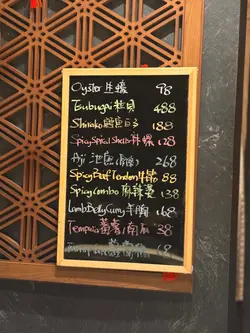 Oyster 生蠔 98
Tsubugai 螺貝 488
Shirako 鱈魚白子 188
Spicy Spiral Shells 辣螺 128
Aji 池魚 268
Spicy Beef Tendon 牛筋 88
Spicy Combo 麻辣 138
Lamb Belly Curry 羊腩 168
Tempura 番薯/南瓜 38
68